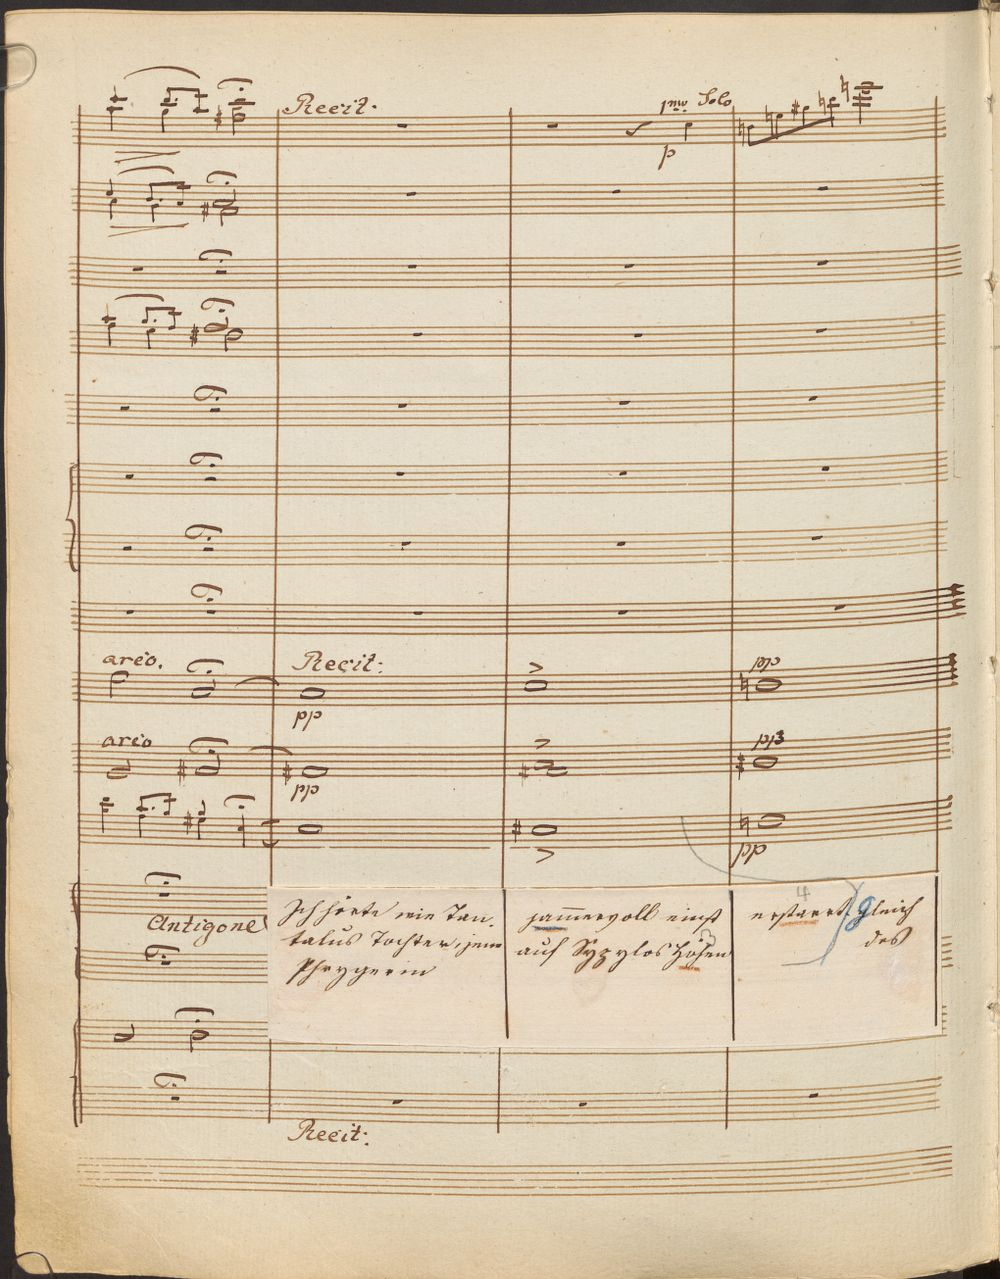 Recit.
1mo Solo
p
arco.
Recit:
pp
>
pp
arco
pp
>
pp
>
pp
Antigone
Ich hörte wie Tan-
talus Tochter, jene
Phrygerin
jam̄ervoll einst
auf Sypylos Höhen
4
erstarrt, gleich
des
Recit: